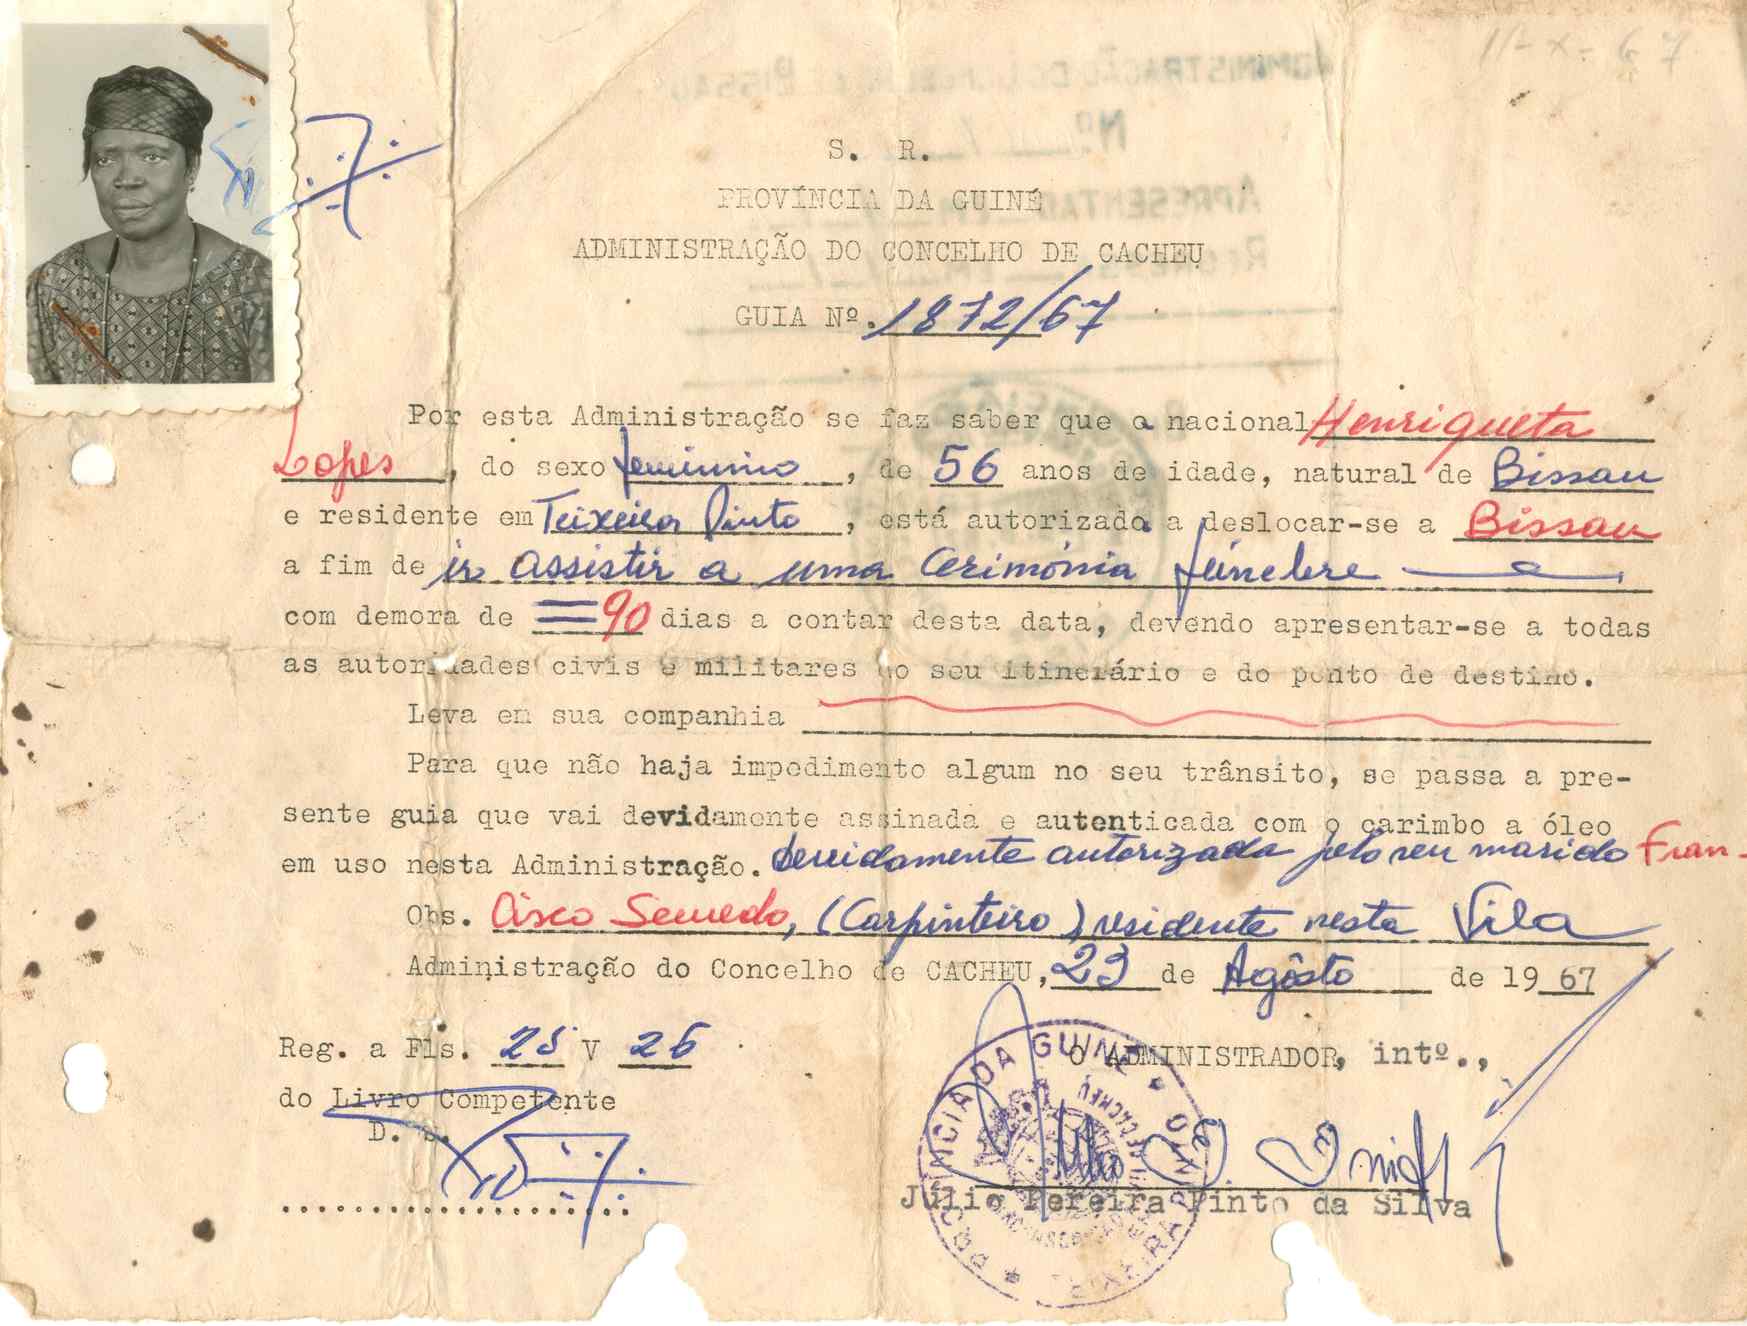 11-X-67
S. R.
PROVÍNCIA DA GUINÉ
ADMINISTRAÇÃO DO CONCELHO DE CACHEU
GUIA Nº. 1872/67
Por esta Administração se faz saber que a nacional Henriqueta
Lopes, do sexo feminino, de 56 anos de idade, natural de Bissau
e residente em Teixeira Pinto, está autorizada a deslocar-se a Bissau
a fim de ir assistir a uma Cerimónia fúnebre
com demora de =90 dias a contar desta data, devendo apresentar-se a todas
as autoridades civis e militares do seu itinerário e do ponto de destino.
Leva em sua companhia
Para que não haja impedimento algum no seu trânsito, se passa a pre-
sente guia que vai devidamente assinada e autenticada com o carimbo a óleo
em uso nesta Administração. devidamente autorizada pelo seu marido Fran-
Obs. cisco Semedo, (Carpinteiro) residente nesta Vila
Administração do Concelho de CACHEU, 23 de Agôsto de 1967
Reg. a Fls. 25 V 26
do Livro Competente
D. S.
O ADMINISTRADOR, intº.,
Júlio Pereira Pinto da Silva
PROVÍNCIA DA GUINÉ